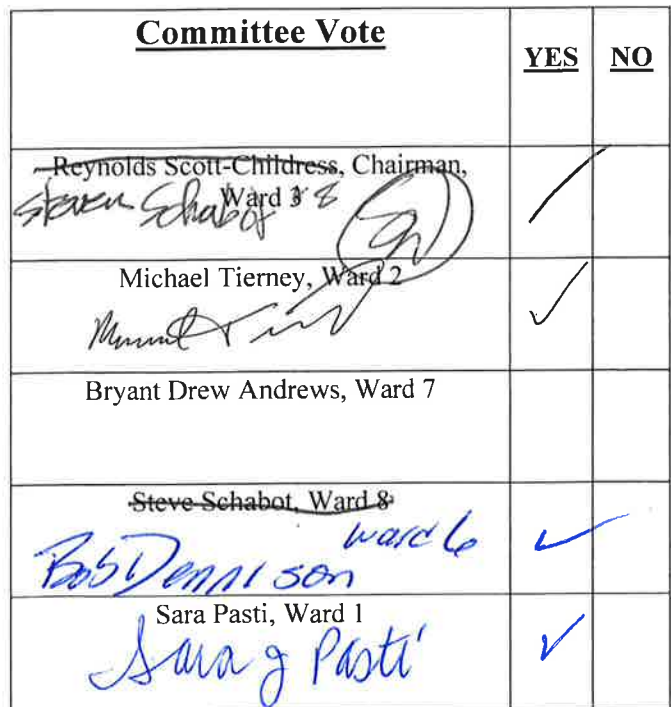 Committee Vote
YES NO
Reynolds Scott-Childress, Chairman,
Ward 3 8
Steven Schabot
Michael Tierney, Ward 2
Bryant Drew Andrews, Ward 7
Steve Schabot, Ward 8
ward 6
Bob Dennison
Sara Pasti, Ward 1
Sara J Pasti